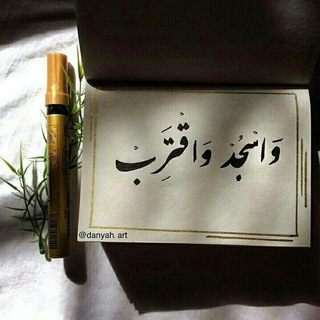 وَاسْجُدْ وَاقْتَرِبْ
@danyah.art